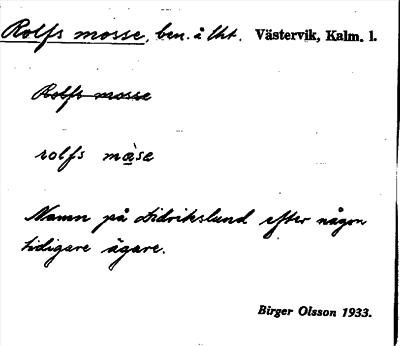 Rolfs mosse, ben. å lht. Västervik, Kalm. l.
Rolfs mosse
rolfs mɷ̀sɷ
Namn på Didrikslund efter någon
tidigare ägare.
Birger Olsson 1933.